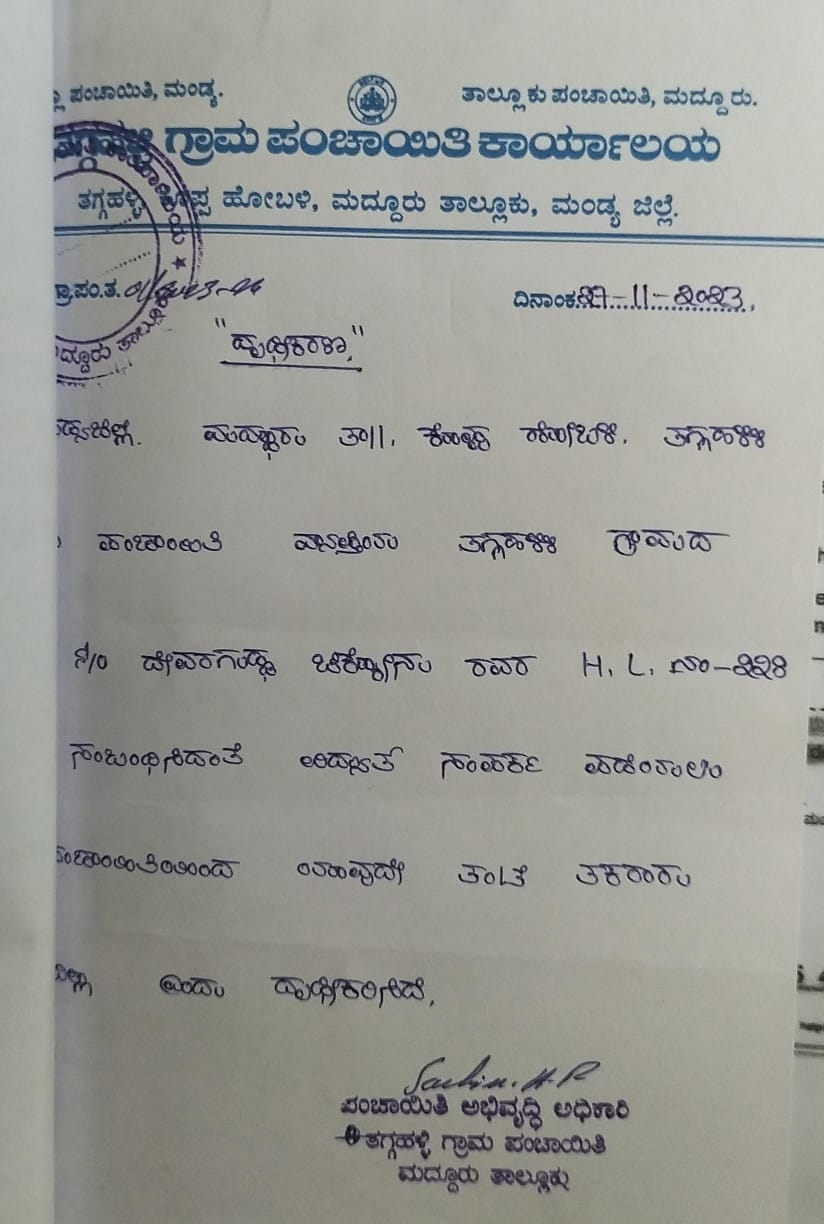 ಪಂಚಾಯಿತಿ, ಮಂಡ್ಯ.
ತಾಲ್ಲೂಕು ಪಂಚಾಯಿತಿ, ಮದ್ದೂರು.
ತಗ್ಗಹಳ್ಳಿ ಗ್ರಾಮ ಪಂಚಾಯಿತಿ ಕಾರ್ಯಾಲಯ
ತಗ್ಗಹಳ್ಳಿ, ಕೊಪ್ಪ ಹೋಬಳಿ, ಮದ್ದೂರು ತಾಲ್ಲೂಕು, ಮಂಡ್ಯ ಜಿಲ್ಲೆ.
ಗ್ರಾ.ಪಂ.ತ.
ದಿನಾಂಕ:27-11-2023,
"ದೃಢೀಕರಣ"
ಮದ್ದೂರು ತಾ||, ಕೊಪ್ಪ ಹೋಬಳಿ, ತಗ್ಗಹಳ್ಳಿ
ಪಂಚಾಯಿತಿ ತಗ್ಗಹಳ್ಳಿ ಗ್ರಾಮದ
S/O ರವರ H. L. ನಂ-228
ಸಂಬಂಧಿಸಿದಂತೆ ವಿದ್ಯುತ್ ಸಂಪರ್ಕ ಪಡೆಯಲು
ಪಂಚಾಯಿತಿಯಿಂದ ಯಾವುದೇ ತಂಟೆ ತಕರಾರು
ಎಂದು ದೃಢೀಕರಿಸಿದೆ,
Sachin. H.P
ಪಂಚಾಯಿತಿ ಅಭಿವೃದ್ಧಿ ಅಧಿಕಾರಿ
ತಗ್ಗಹಳ್ಳಿ ಗ್ರಾಮ ಪಂಚಾಯಿತಿ
ಮದ್ದೂರು ತಾಲ್ಲೂಕು